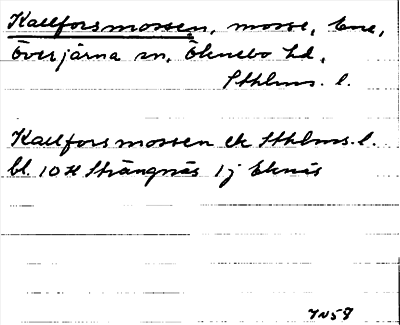 Kallforsmossen, mosse, Ene,
Överjärna sn, Öknebo hd,
Sthlms. l.
Kallforsmossen ek Sthlms. l.
bl. 10 H Strängnäs 1j Eknäs